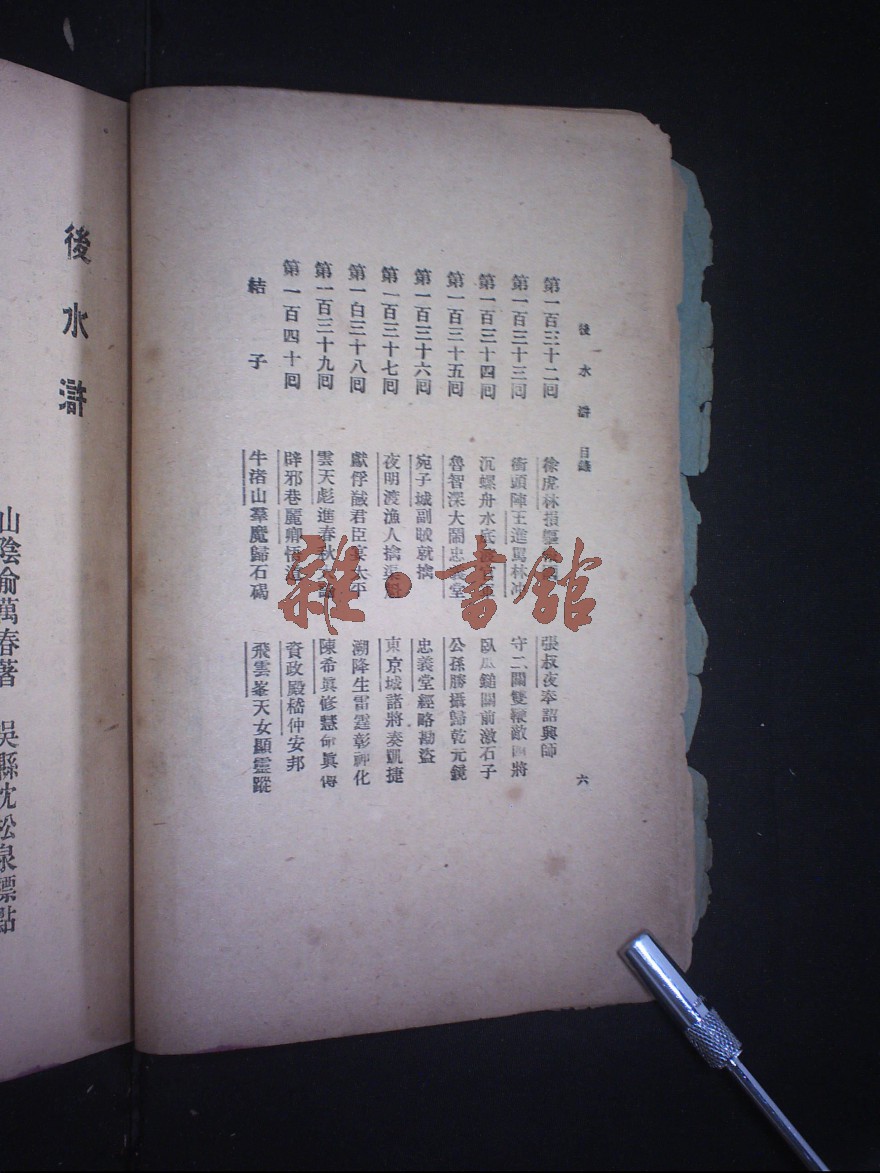 後水滸 目錄 六
第一百三十二回 徐虎林捐軀 張叔夜奉詔興師
第一百三十三回 衝頭陣王進罵林冲 守二關雙鞭敵四將
第一百三十四回 沉螺舟水底渡官軍 臥瓜鎚關前激石子
第一百三十五回 魯智深大鬧忠義堂 公孫勝攝歸乾元鏡
第一百三十六回 宛子城副賊就擒 忠義堂經略勘盜
第一百三十七回 夜明渡漁人擒渠魁 東京城諸將奏凱捷
第一白三十八回 獻俘馘君臣宴太平 溯降生雷霆彰神化
第一百三十九回 雲天彪進春秋大論 陳希眞修慧命眞傳
第一百四十回 辟邪巷麗卿悟道 資政殿嵇仲安邦
結子 牛渚山羣魔歸石碣 飛雲峯天女顯靈蹤
後水滸
山陰俞萬春著 吳縣沈松泉標點
雜·書館